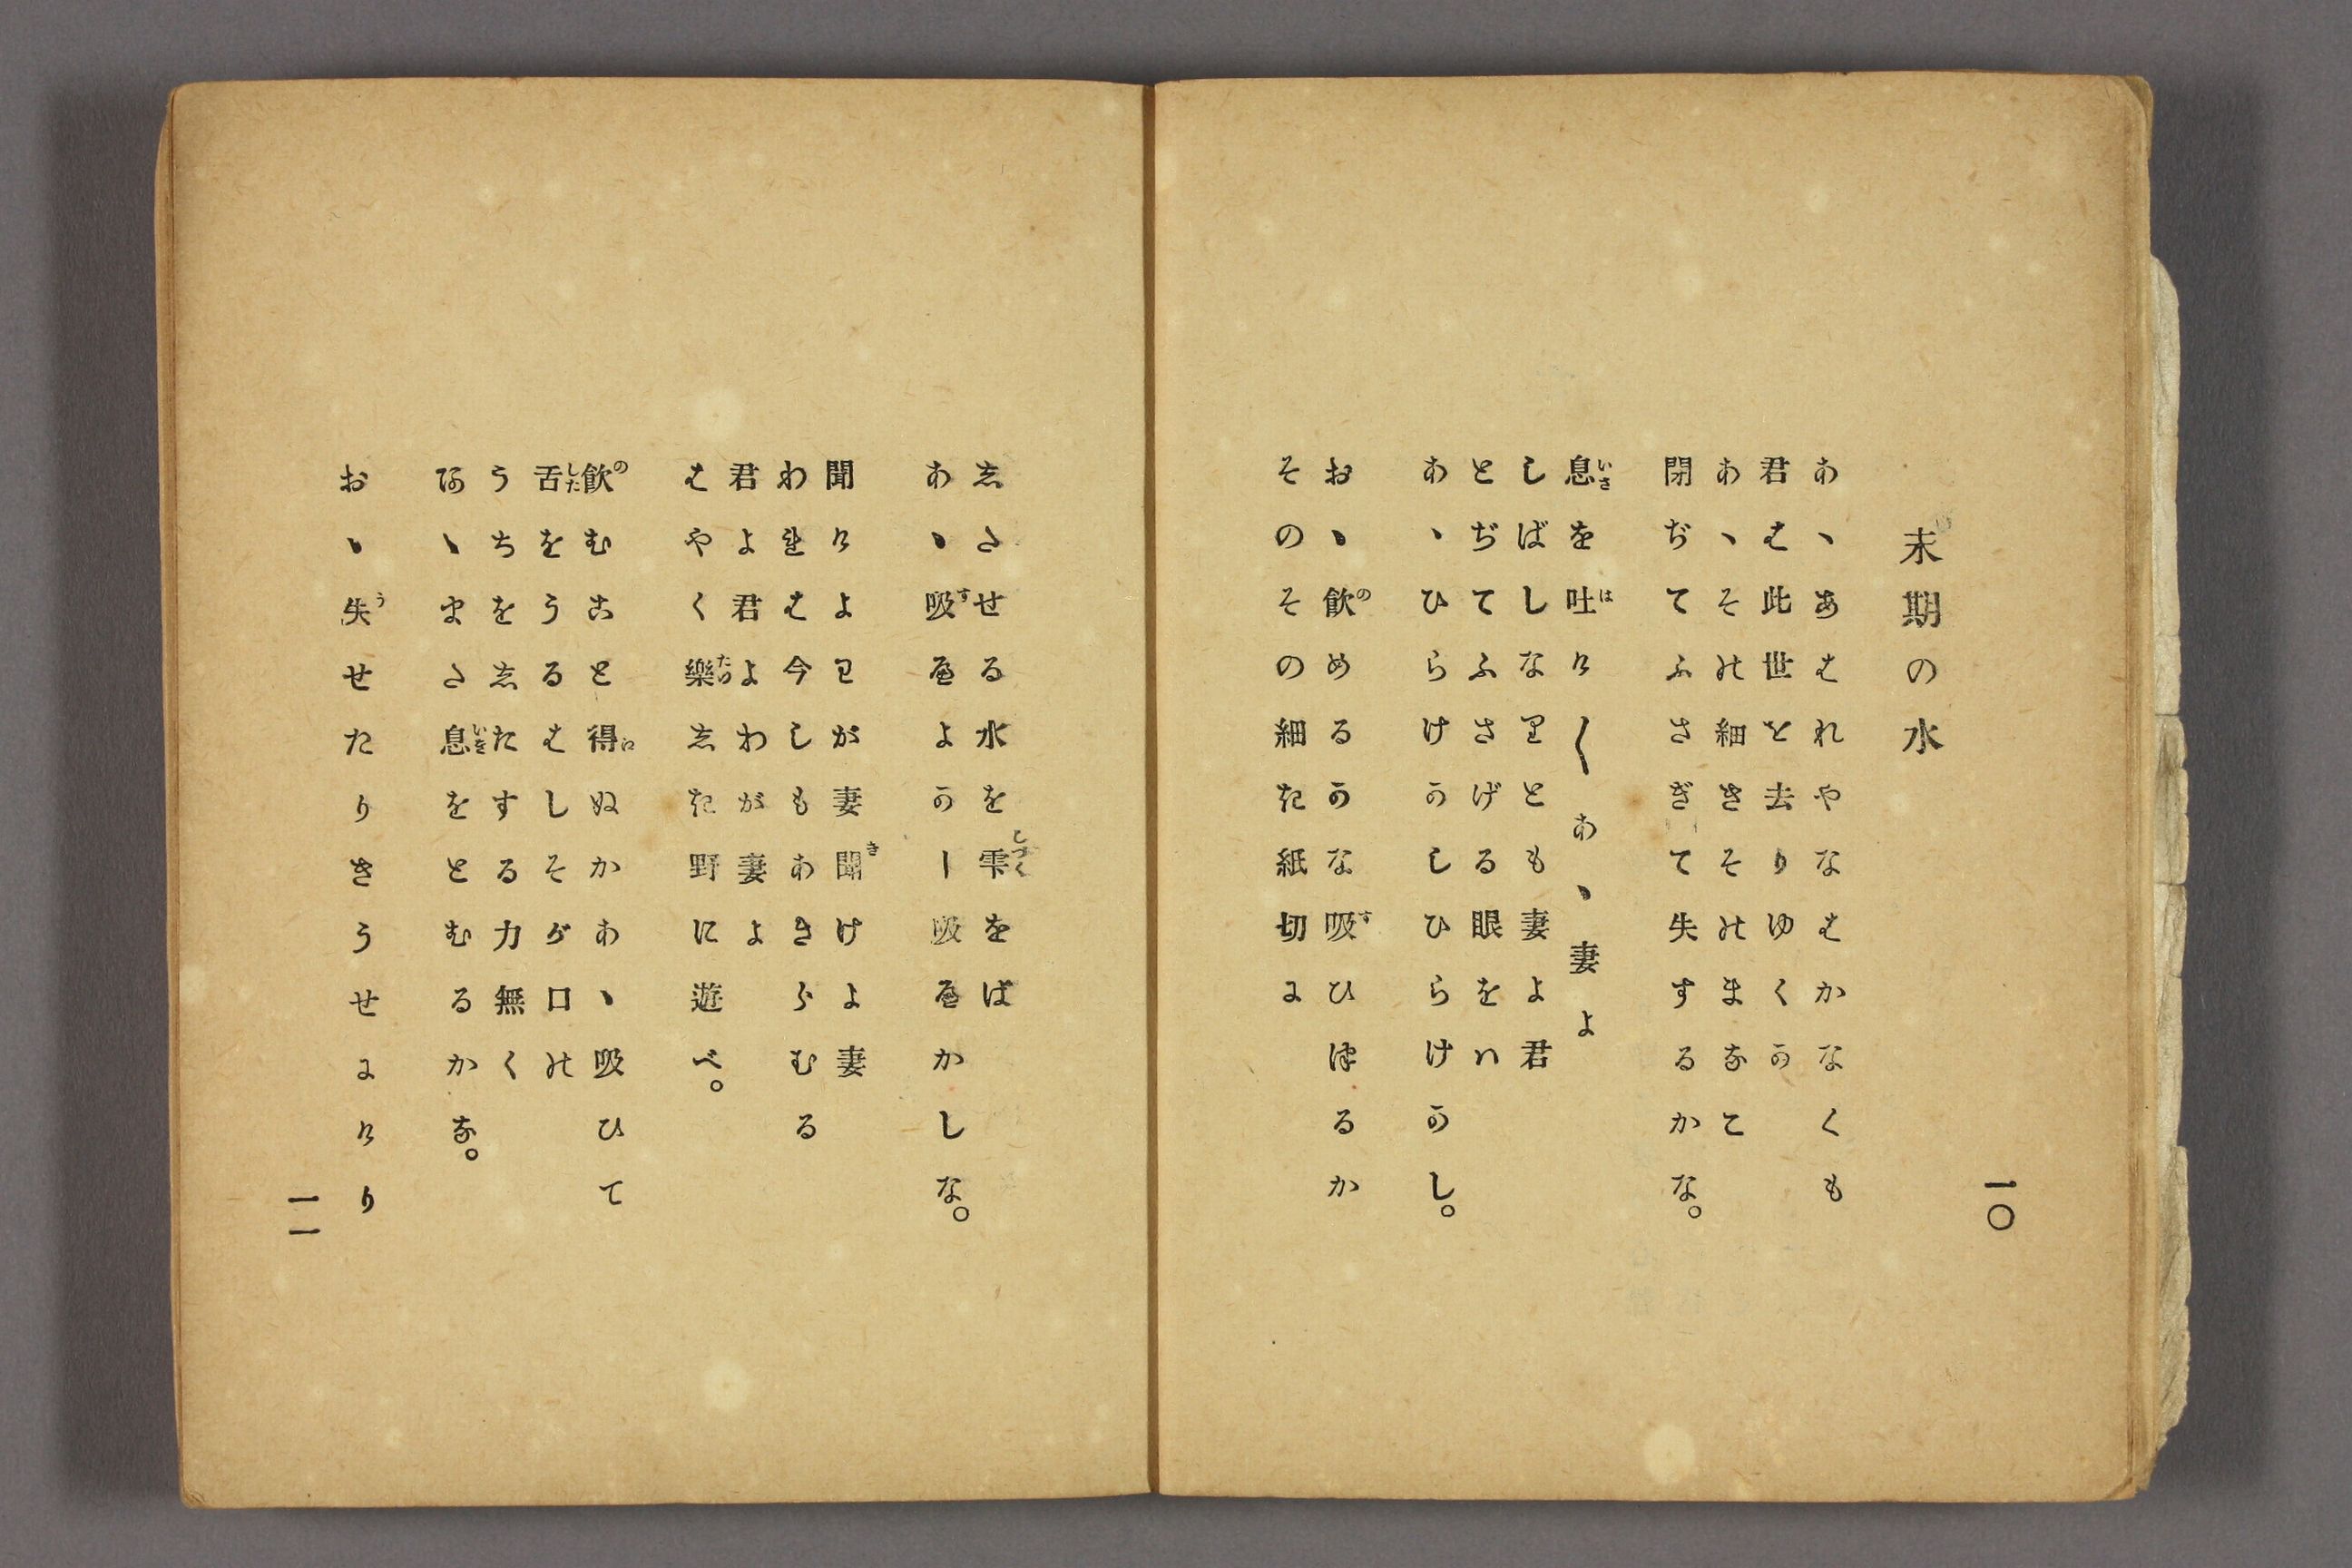 一〇
末期の水
あゝあはれやなはかなくも
君は此世を去りゆくか
あゝその細きそのまなこ
閉ぢてふさぎて失するかな。
息を吐け〳〵あゝ妻よ
しばしなりとも妻よ君
とぢてふさげる眼をハ
あゝひらけかしひらけかし。
おゝ飲めるかな吸ひつるか
そのその細き紙切に
したせる水を雫をば
あゝ吸へよかし吸へかしな。
聞けよわが妻聞けよ妻
われは今しもあきらむる
君よ君よわが妻よ
はやく樂しき野に遊べ。
飲むこと得ぬかあゝ吸ひて
舌をうるはしそが口の
うちをしたする力無く
あゝまた息をとむるかな。
おゝ失せたりきうせにけり
一一